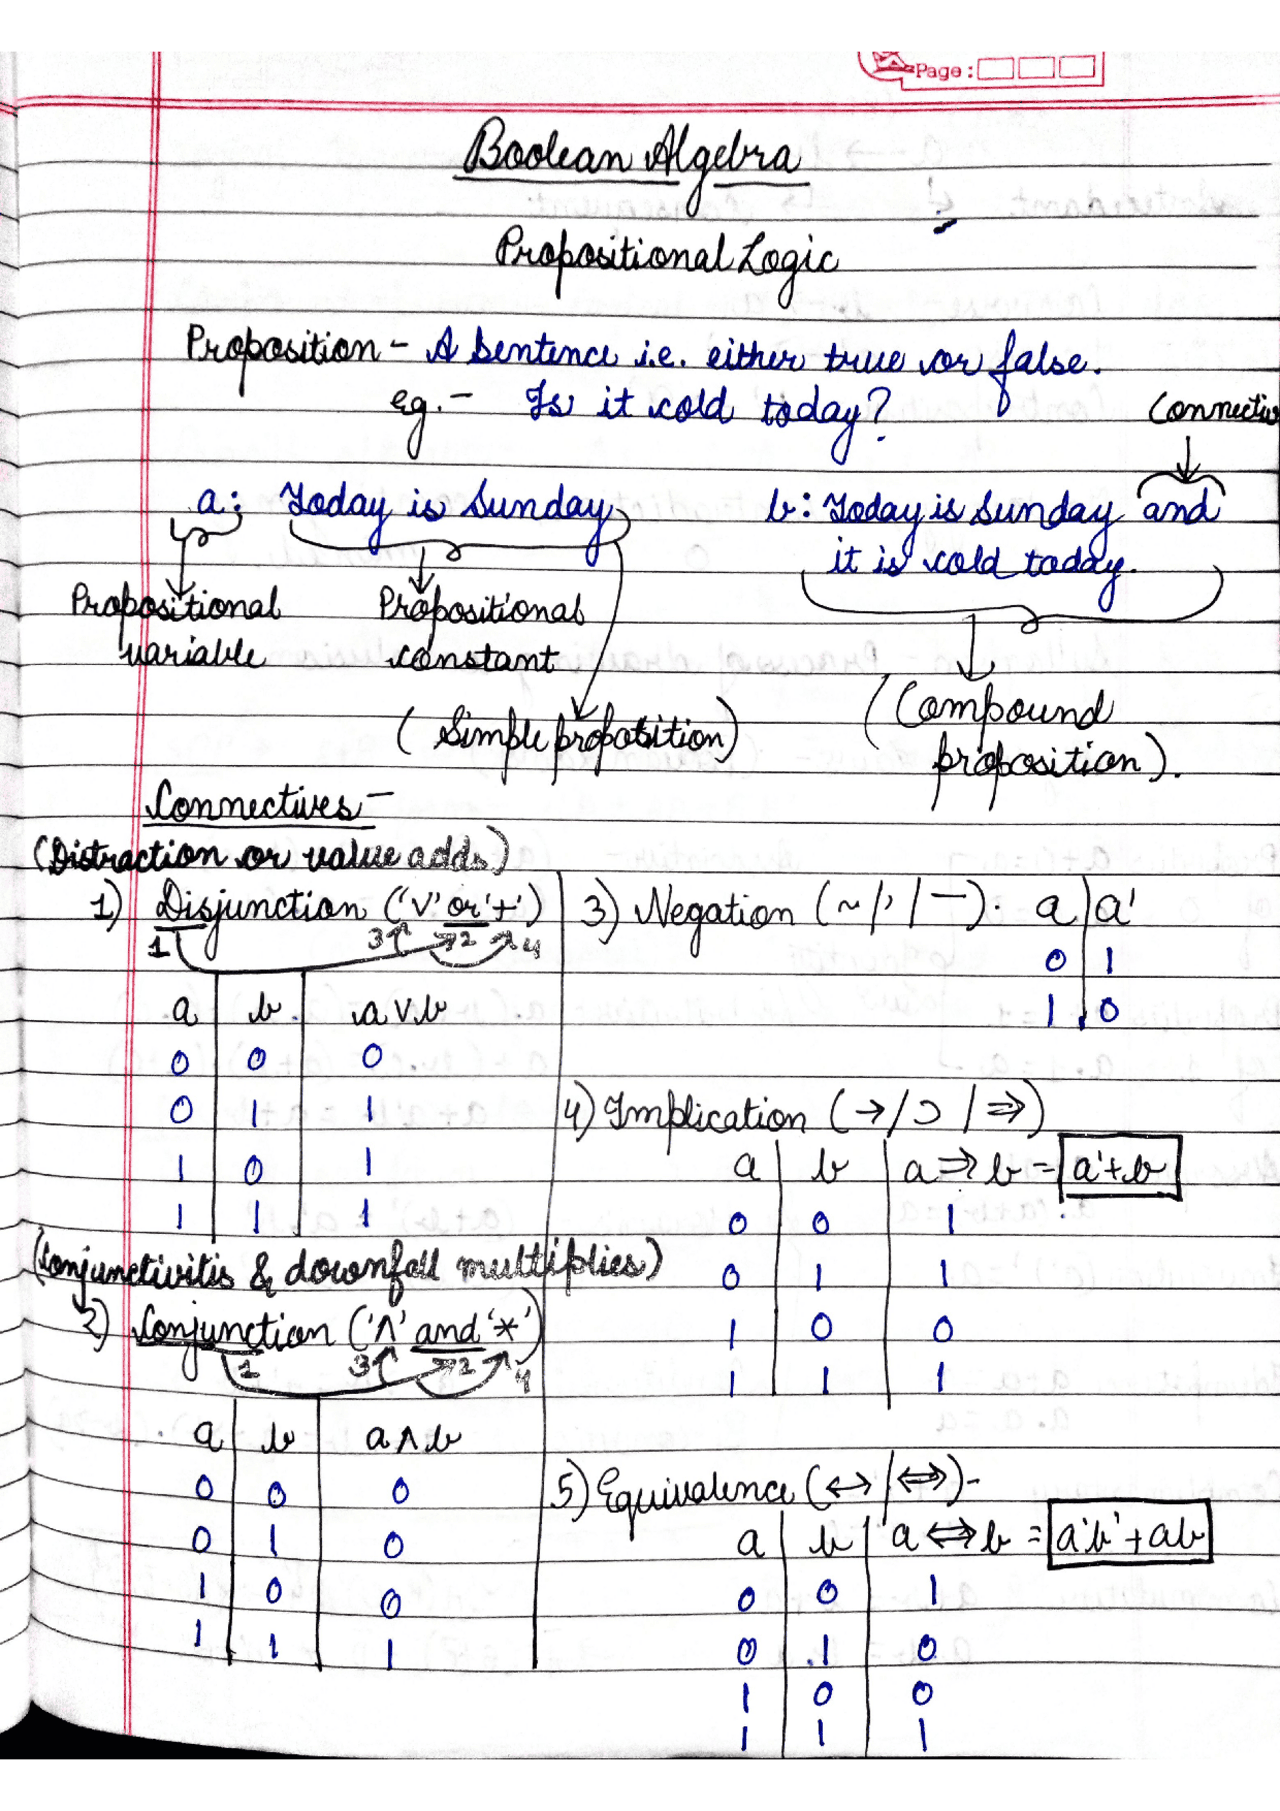 Page:
Boolean Algebra
Propositional Logic
Proposition - A sentence i.e. either true or false.
eg. - Is it cold today?
Connective
a: Today is Sunday
b: Today is Sunday and
it is cold today.
Propositional variable
Propositional constant
(Simple proposition)
(Compound proposition).
Connectives -
(Distraction or value adds)
1) Disjunction ('∨' or '+')
1 3 2 4
a b a ∨ b
0 0 0
0 1 1
1 0 1
1 1 1
(Conjunctivitis & downfall multiplies)
2) Conjunction ('∧' and '*')
1 3 2 4
a b a ∧ b
0 0 0
0 1 0
1 0 0
1 1 1
3) Negation (~/'/—)
a a'
0 1
1 0
4) Implication (→/⊃/⇒)
a b a ⇒ b = a'+b
0 0 1
0 1 1
1 0 0
1 1 1
5) Equivalence (↔/⇔)-
a b a ⇔ b = a'b'+ab
0 0 1
0 1 0
1 0 0
1 1 1